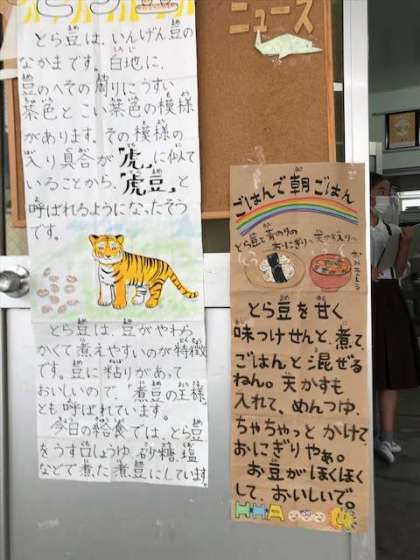 ニュース
とら豆は、いんげん豆の
なかまです。白地に、
豆のへその周りにうすい
茶色とこい茶色の模様
があります。その模様の
入り具合が「虎」に似て
いることから、「虎豆」と
呼ばれるようになったそう
です。
とら豆は、豆がやわら
かくて煮えやすいのが特徴
です。豆に粘りがあって
おいしいので、「煮豆の王様」
とも呼ばれています。
今日の給食では、とら豆
をうす口しょうゆ、砂糖、塩
などで煮た煮豆にしています。
ごはんで朝ごはん
とら豆と青のりの
おにぎり〜天かす入り〜
おみそしる
とら豆を甘く
味つけせんと、煮て、
ごはんと混ぜる
ねん。天かすも
入れて、めんつゆ、
ちゃちゃっとかけて、
おにぎりやぁ。
お豆がほくほく
して、おいしいで。